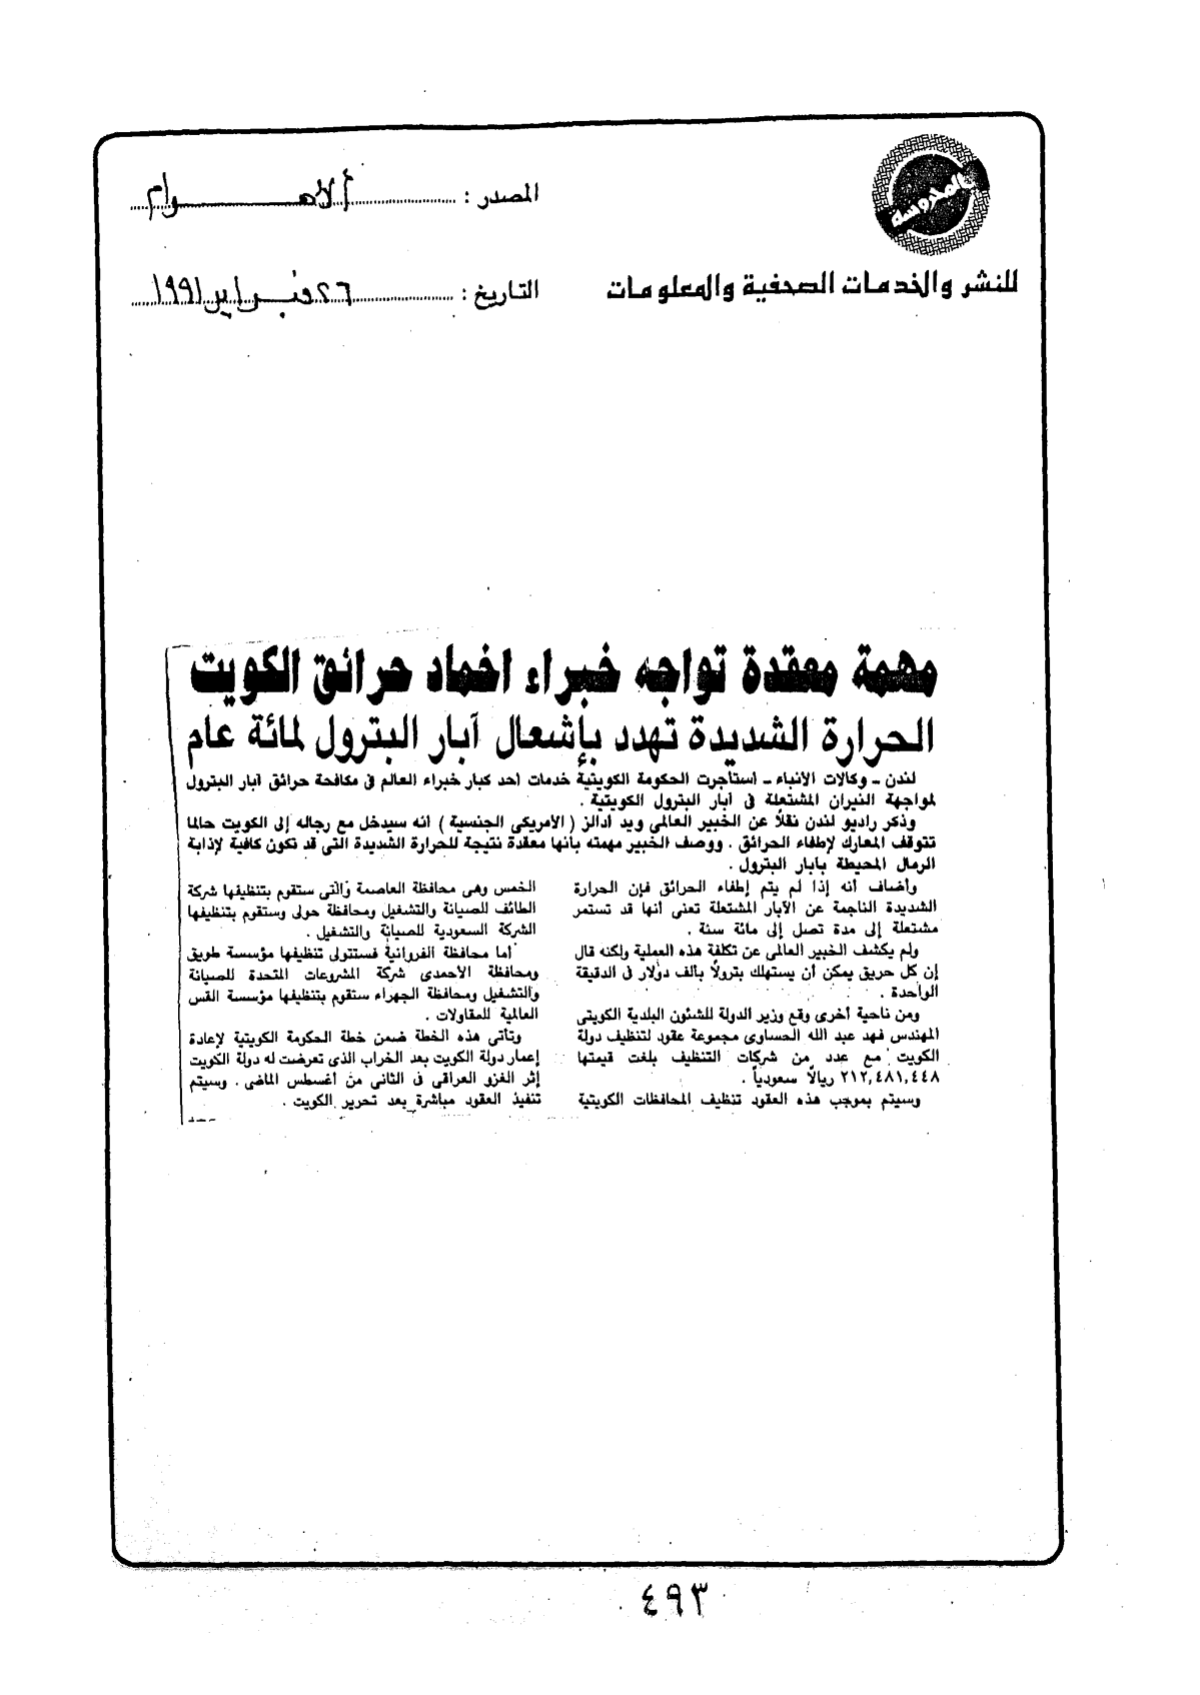 المحروسة
للنشر والخدمات الصحفية والمعلومات
المصدر : الأهرام
التاريخ : ٢٦ فبراير ١٩٩١
مهمة معقدة تواجه خبراء اخماد حرائق الكويت
الحرارة الشديدة تهدد بإشعال آبار البترول لمائة عام
لندن - وكالات الأنباء - استأجرت الحكومة الكويتية خدمات أحد كبار خبراء العالم في مكافحة حرائق آبار البترول
لمواجهة النيران المشتعلة في آبار البترول الكويتية .
وذكر راديو لندن نقلاً عن الخبير العالمي ويد أدالز ( الأمريكي الجنسية ) أنه سيدخل مع رجاله إلى الكويت حالما
تتوقف المعارك لإطفاء الحرائق . ووصف الخبير مهمته بأنها معقدة نتيجة للحرارة الشديدة التي قد تكون كافية لإذابة
الرمال المحيطة بآبار البترول .
وأضاف أنه إذا لم يتم إطفاء الحرائق فإن الحرارة
الشديدة الناجمة عن الآبار المشتعلة تعنى أنها قد تستمر
مشتعلة إلى مدة تصل إلى مائة سنة .
ولم يكشف الخبير العالمي عن تكلفة هذه العملية ولكنه قال
إن كل حريق يمكن أن يستهلك بترولاً بألف دولار في الدقيقة
الواحدة .
ومن ناحية أخرى وقع وزير الدولة للشئون البلدية الكويتى
المهندس فهد عبد الله الحساوى مجموعة عقود لتنظيف دولة
الكويت مع عدد من شركات التنظيف بلغت قيمتها
٢١٢,٤٨١,٤٤٨ ريالاً سعودياً .
وسيتم بموجب هذه العقود تنظيف المحافظات الكويتية
الخمس وهى محافظة العاصمة والتى ستقوم بتنظيفها شركة
الطائف للصيانة والتشغيل ومحافظة حولى وستقوم بتنظيفها
الشركة السعودية للصيانة والتشغيل .
أما محافظة الفروانية فستتولى تنظيفها مؤسسة طويق
ومحافظة الأحمدى شركة المشروعات المتحدة للصيانة
والتشغيل ومحافظة الجهراء ستقوم بتنظيفها مؤسسة القس
العالمية للمقاولات .
وتأتى هذه الخطة ضمن خطة الحكومة الكويتية لإعادة
إعمار دولة الكويت بعد الخراب الذى تعرضت له دولة الكويت
إثر الغزو العراقى فى الثانى من أغسطس الماضى . وسيتم
تنفيذ العقود مباشرة بعد تحرير الكويت .
٤٩٣